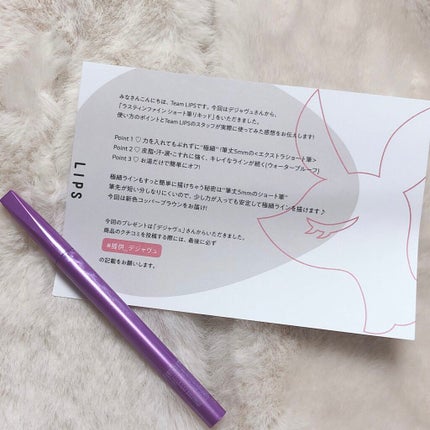 みなさんこんにちは、Team LIPSです。今回はデジャヴュさんから、
「ラスティンファイン ショート筆リキッド」をいただきました。
使い方のポイントとTeam LIPSのスタッフが実際に使ってみた感想をお伝えします!
Point 1 ♡ 力を入れてもぶれずに"極細"!筆丈5mmの<エクストラショート筆>
Point 2 ♡ 皮脂・汗・涙・こすれに強く、キレイなラインが続く(ウォータープルーフ)
Point 3 ♡ お湯だけで簡単にオフ!
極細ラインもすっと簡単に描けちゃう秘密は"筆丈5mmのショート筆"
筆先が短い分しなりにくいので、少し力が入っても安定して極細ラインを描けます♪
今回は新色コッパーブラウンをお届け!
今回のプレゼントは「デジャヴュ」さんからいただきました。
商品のクチコミを投稿する際には、最後に必ず
#提供_デジャヴュ
の記載をお願いします。
LIPS